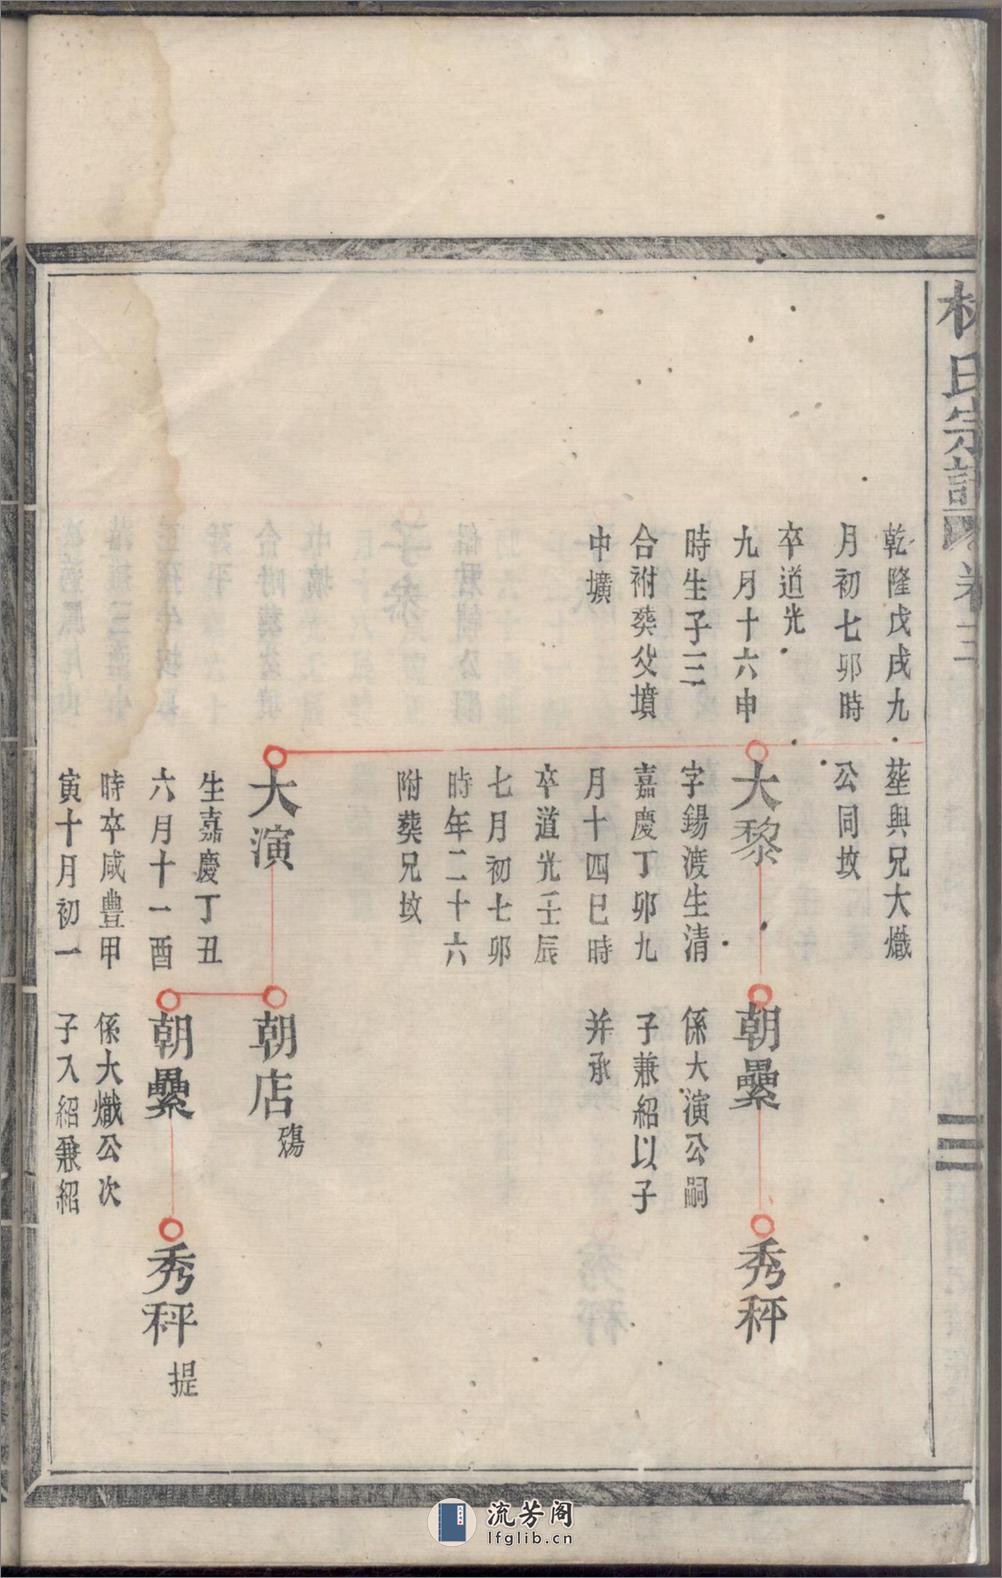 林氏宗譜 卷三
乾隆戊戌九
月初七卯時
卒道光
九月十六申
時生子三
合祔葬父墳
中壙
塟與兄大熾
公同坟
大黎
字錫渡生清
嘉慶丁卯九
月十四巳時
卒道光壬辰
七月初七卯
時年二十六
附葬兄坟
大演
生嘉慶丁丑
六月十一酉
時卒咸豊甲
寅十月初一
朝纍
係大演公嗣
子兼紹以子
并承
朝店
殤
朝纍
係大熾公次
子入紹兼紹
秀秤
秀秤
提
流芳阁
lfglib.cn